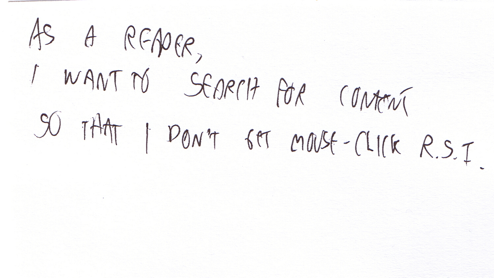 AS A READER,
I WANT TO SEARCH FOR CONTENT
SO THAT I DON'T GET MOUSE-CLICK R.S.I.